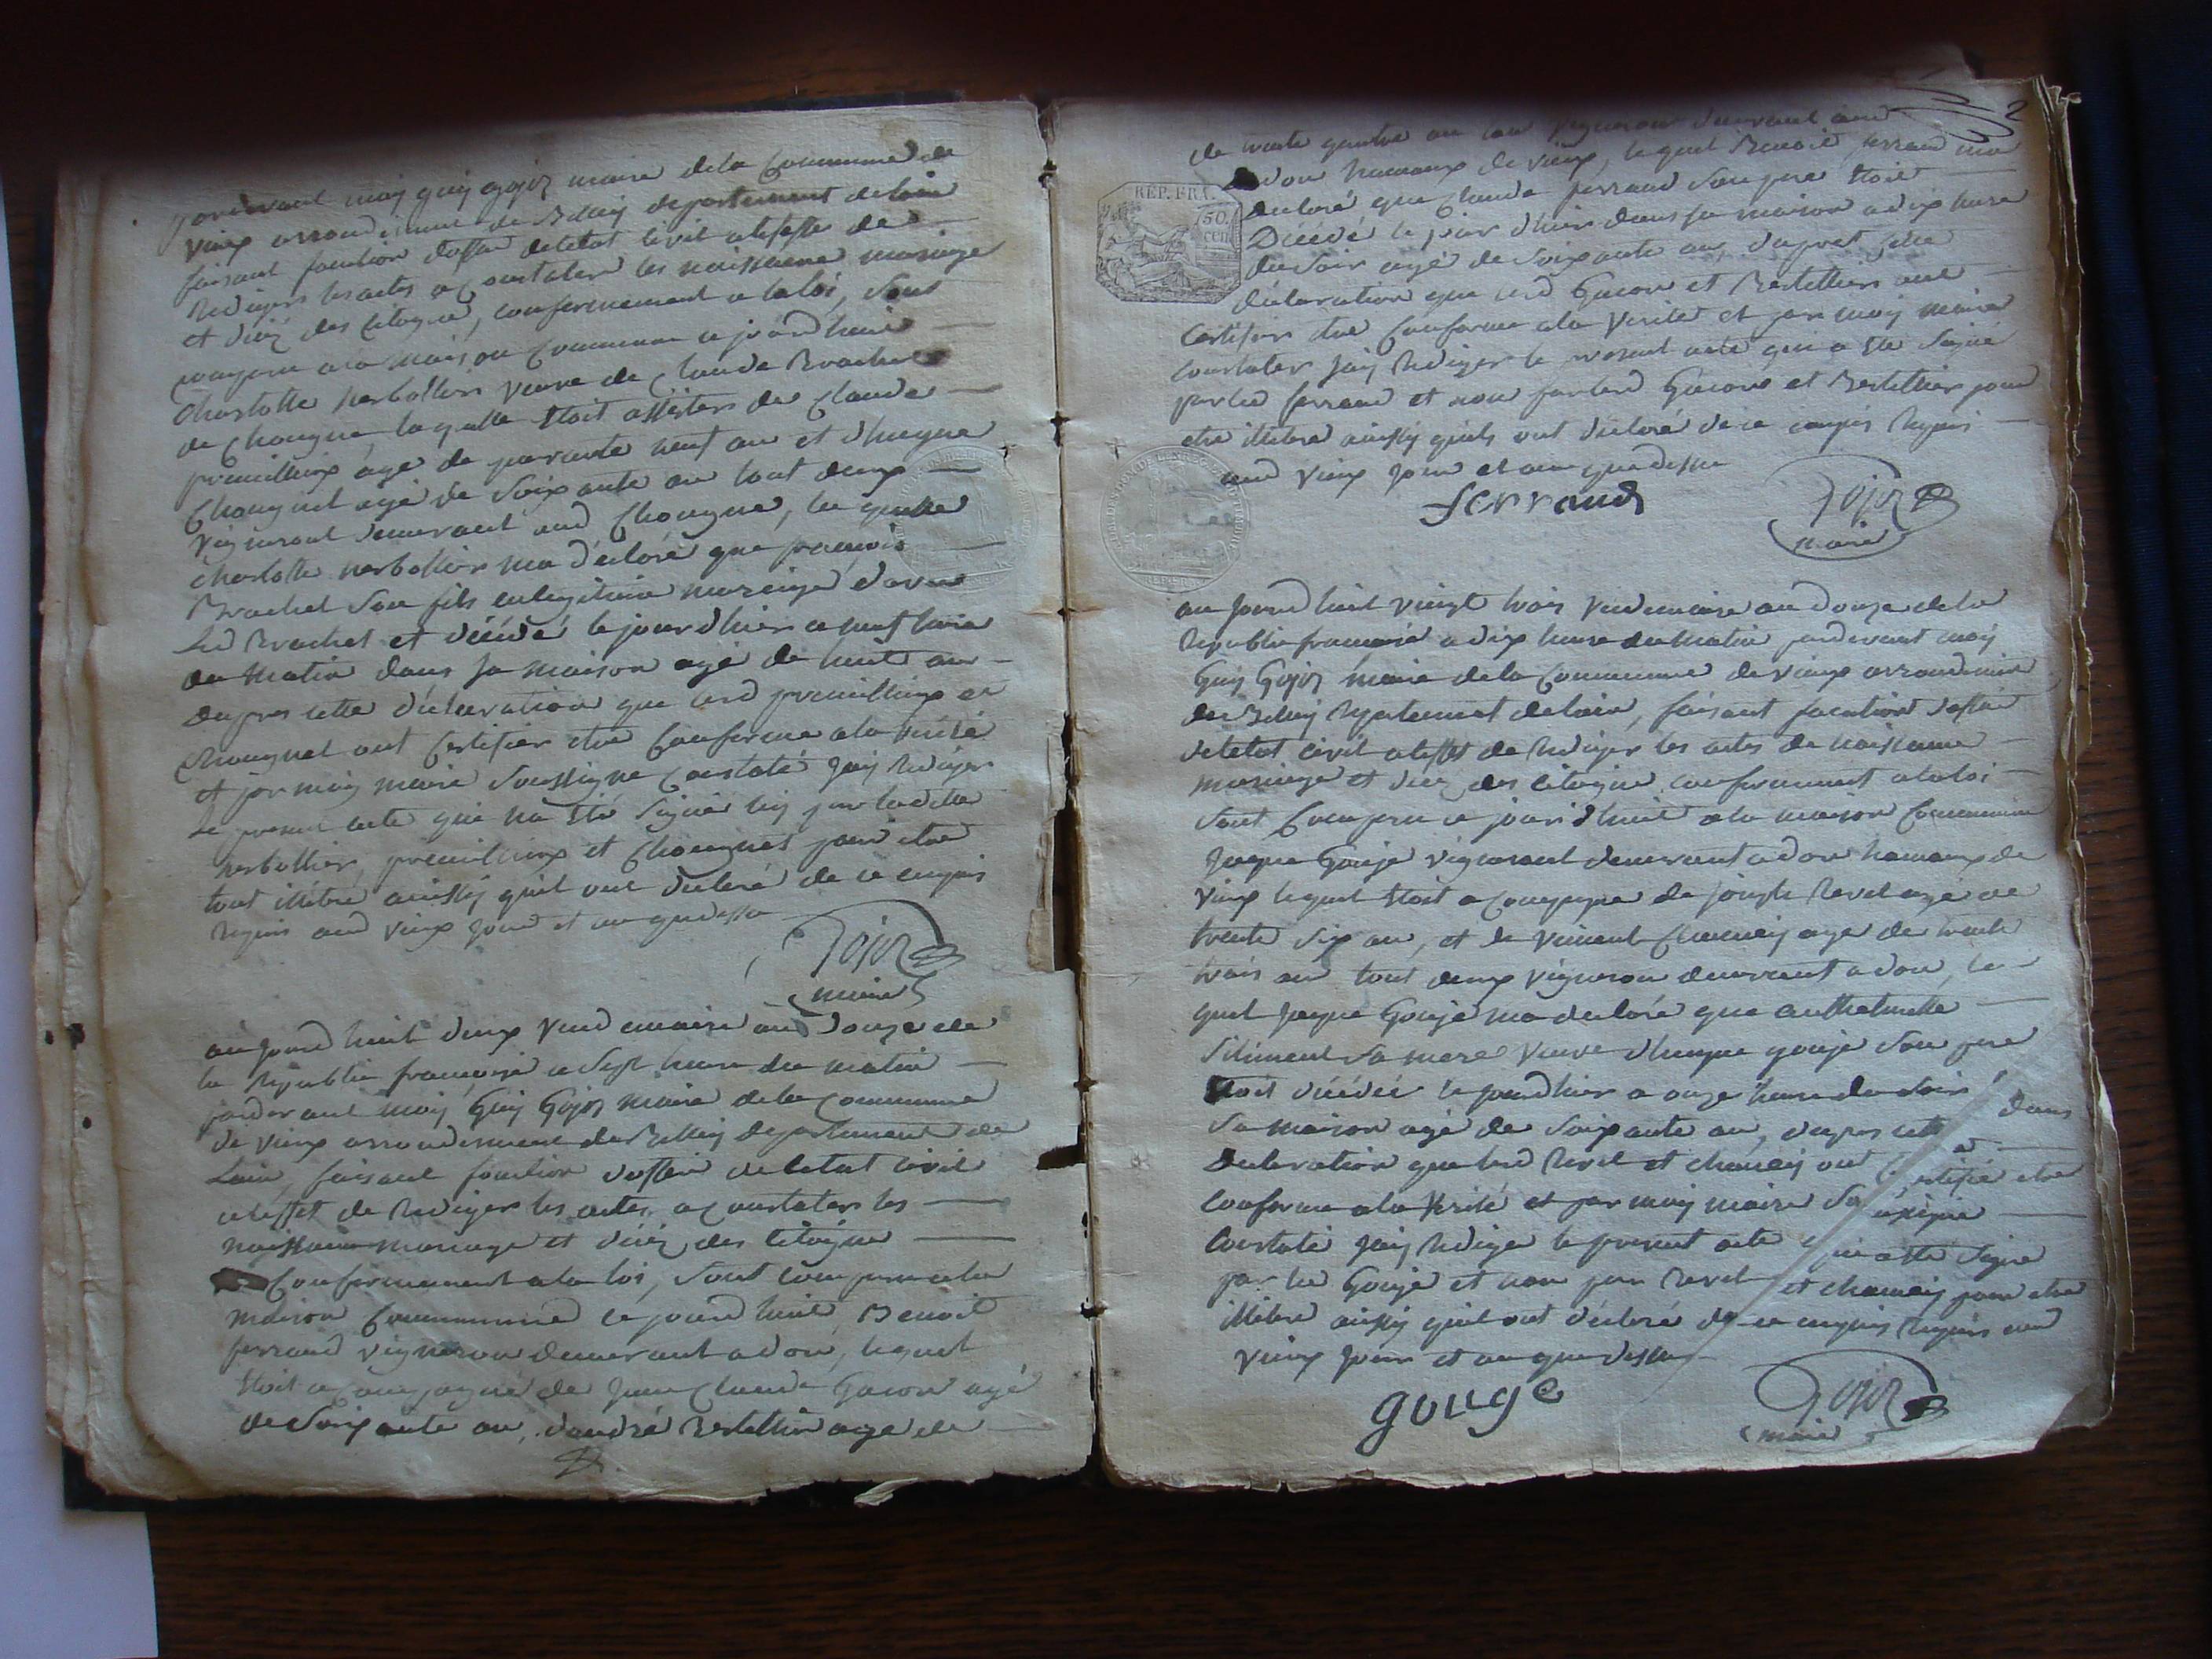 pardevant moy guy gojoz maire dela Commune de
Vieux arrondisement de Belley departement de lain
faisant fonction doffier deletat civil aleffete de
Rediger les actes a Constater les naissance mariage
et déceź des Citoyens, conformement a la loi, sont
comparu a la maison Commune ce jourdhuit
Charlotte herbollier veuve de Claude Brachet
de Chougne, laquelle étoit assistér de Claude
premillieux agé de quarante neuf an et dhugue
Chougnet agé de soixante an tout deux
Vigneront demeurant aud Chougne, la quelle
charlotte herbollier ma déclaré que francois
Brachet son fils en legitime mareiage davec
Led Brachet et décédé le jourdhier a neuf heure
du matin dans sa maison agé de huit an
dapres cette déclaration que lesd premillieux et
Chougnet ont Certifier etre Conforme a la vérité
et par moy maire soussigne Constaté jay rédiger
le present acte qui na été signié ny par ladite
herbollier, premillieux et Chougnet pour etre
tout illitéré ainssy quil ont déclaré de ce enquis
requis aud vieux jour et an que dessu
Gojoz
maire
au jourd huit deux vend emiaire an douze de
la republie françoise a sept heure du matin
pardevant moy Guy Gojoz maire dela commune
de vieux arrondisement de Belley departement de
Lain, faisant fonction doffier deletat civil
aleffet de rediger les actes, a constater les
naissance mariage et déceź des Citoyens
Conformement a la loi, sont comparu a la
maison Commune ce jourd huit, Benoit
ferrand vigneron demeurant a don, lequel
étoit acompagné de Jean Claude Gacon agé
de soixante an, dandré Bertellier age de
2
de trente quatre an tou vigneron demeurant aud
don hameaux de vieux, lequel Benoit ferrand ma
declaré que Claude ferrand son pere étoit
Décédé le jour dhier dans sa maison a dix heure
du soir agé de soixante an, dapret cette
déclaration que lesd Gacon et Bertellier ont
Certifier etre Conforme ala verité et par moy maire
Constater jay rediger le present acte qui a été signé
par led ferrand et non par lesd Gacon et Bertellier pour
etre illitéré ainssy quils ont déclaré de ce enquis requis
aud vieux jour et an que dessu
REP. FRA.
50
cen
ferrand
Gojoz
maire
au jourd huit vingt trois vendemiaire an douze dela
republie françoise a dix heure du matin pardevant moy
Guy Gojoz maire dela Commune de vieux arrondisement
de Belley departement de lain, faisant fonction doffier
deletat civil aleffet de rediger les actes de naissance
mariage et déceź des Citoyens conformement a la loi
sont Comparu ce jourd huit a la maison Commune
jaque Gouje vigneront demeurant a don hameaux de
vieux lequel étoit acompagne de joseph Revel agé de
trente six an, et de vincent Chamey age de trente
trois an tout deux vigneron demeurant a don, le
quel jaque Gouje ma declaré que anthelmette
Siliment sa mere veuve dhugue gouje son pere
étoit décédée le jourdhier a onze heure du soir dans
sa maison agé de soixante an, dapres cette
declaration que lesd Revel et chamey ont Certifié etre
Conforme a la verité et par moy maire soussigné
Constaté jay rediger le present acte qui a été signe
par led Gouje et non par Revel et chamey pour etre
illitéré ainssy quil ont déclaré de ce enquis requis aud
vieux jour et an que dessu
gouge
Gojoz
maire